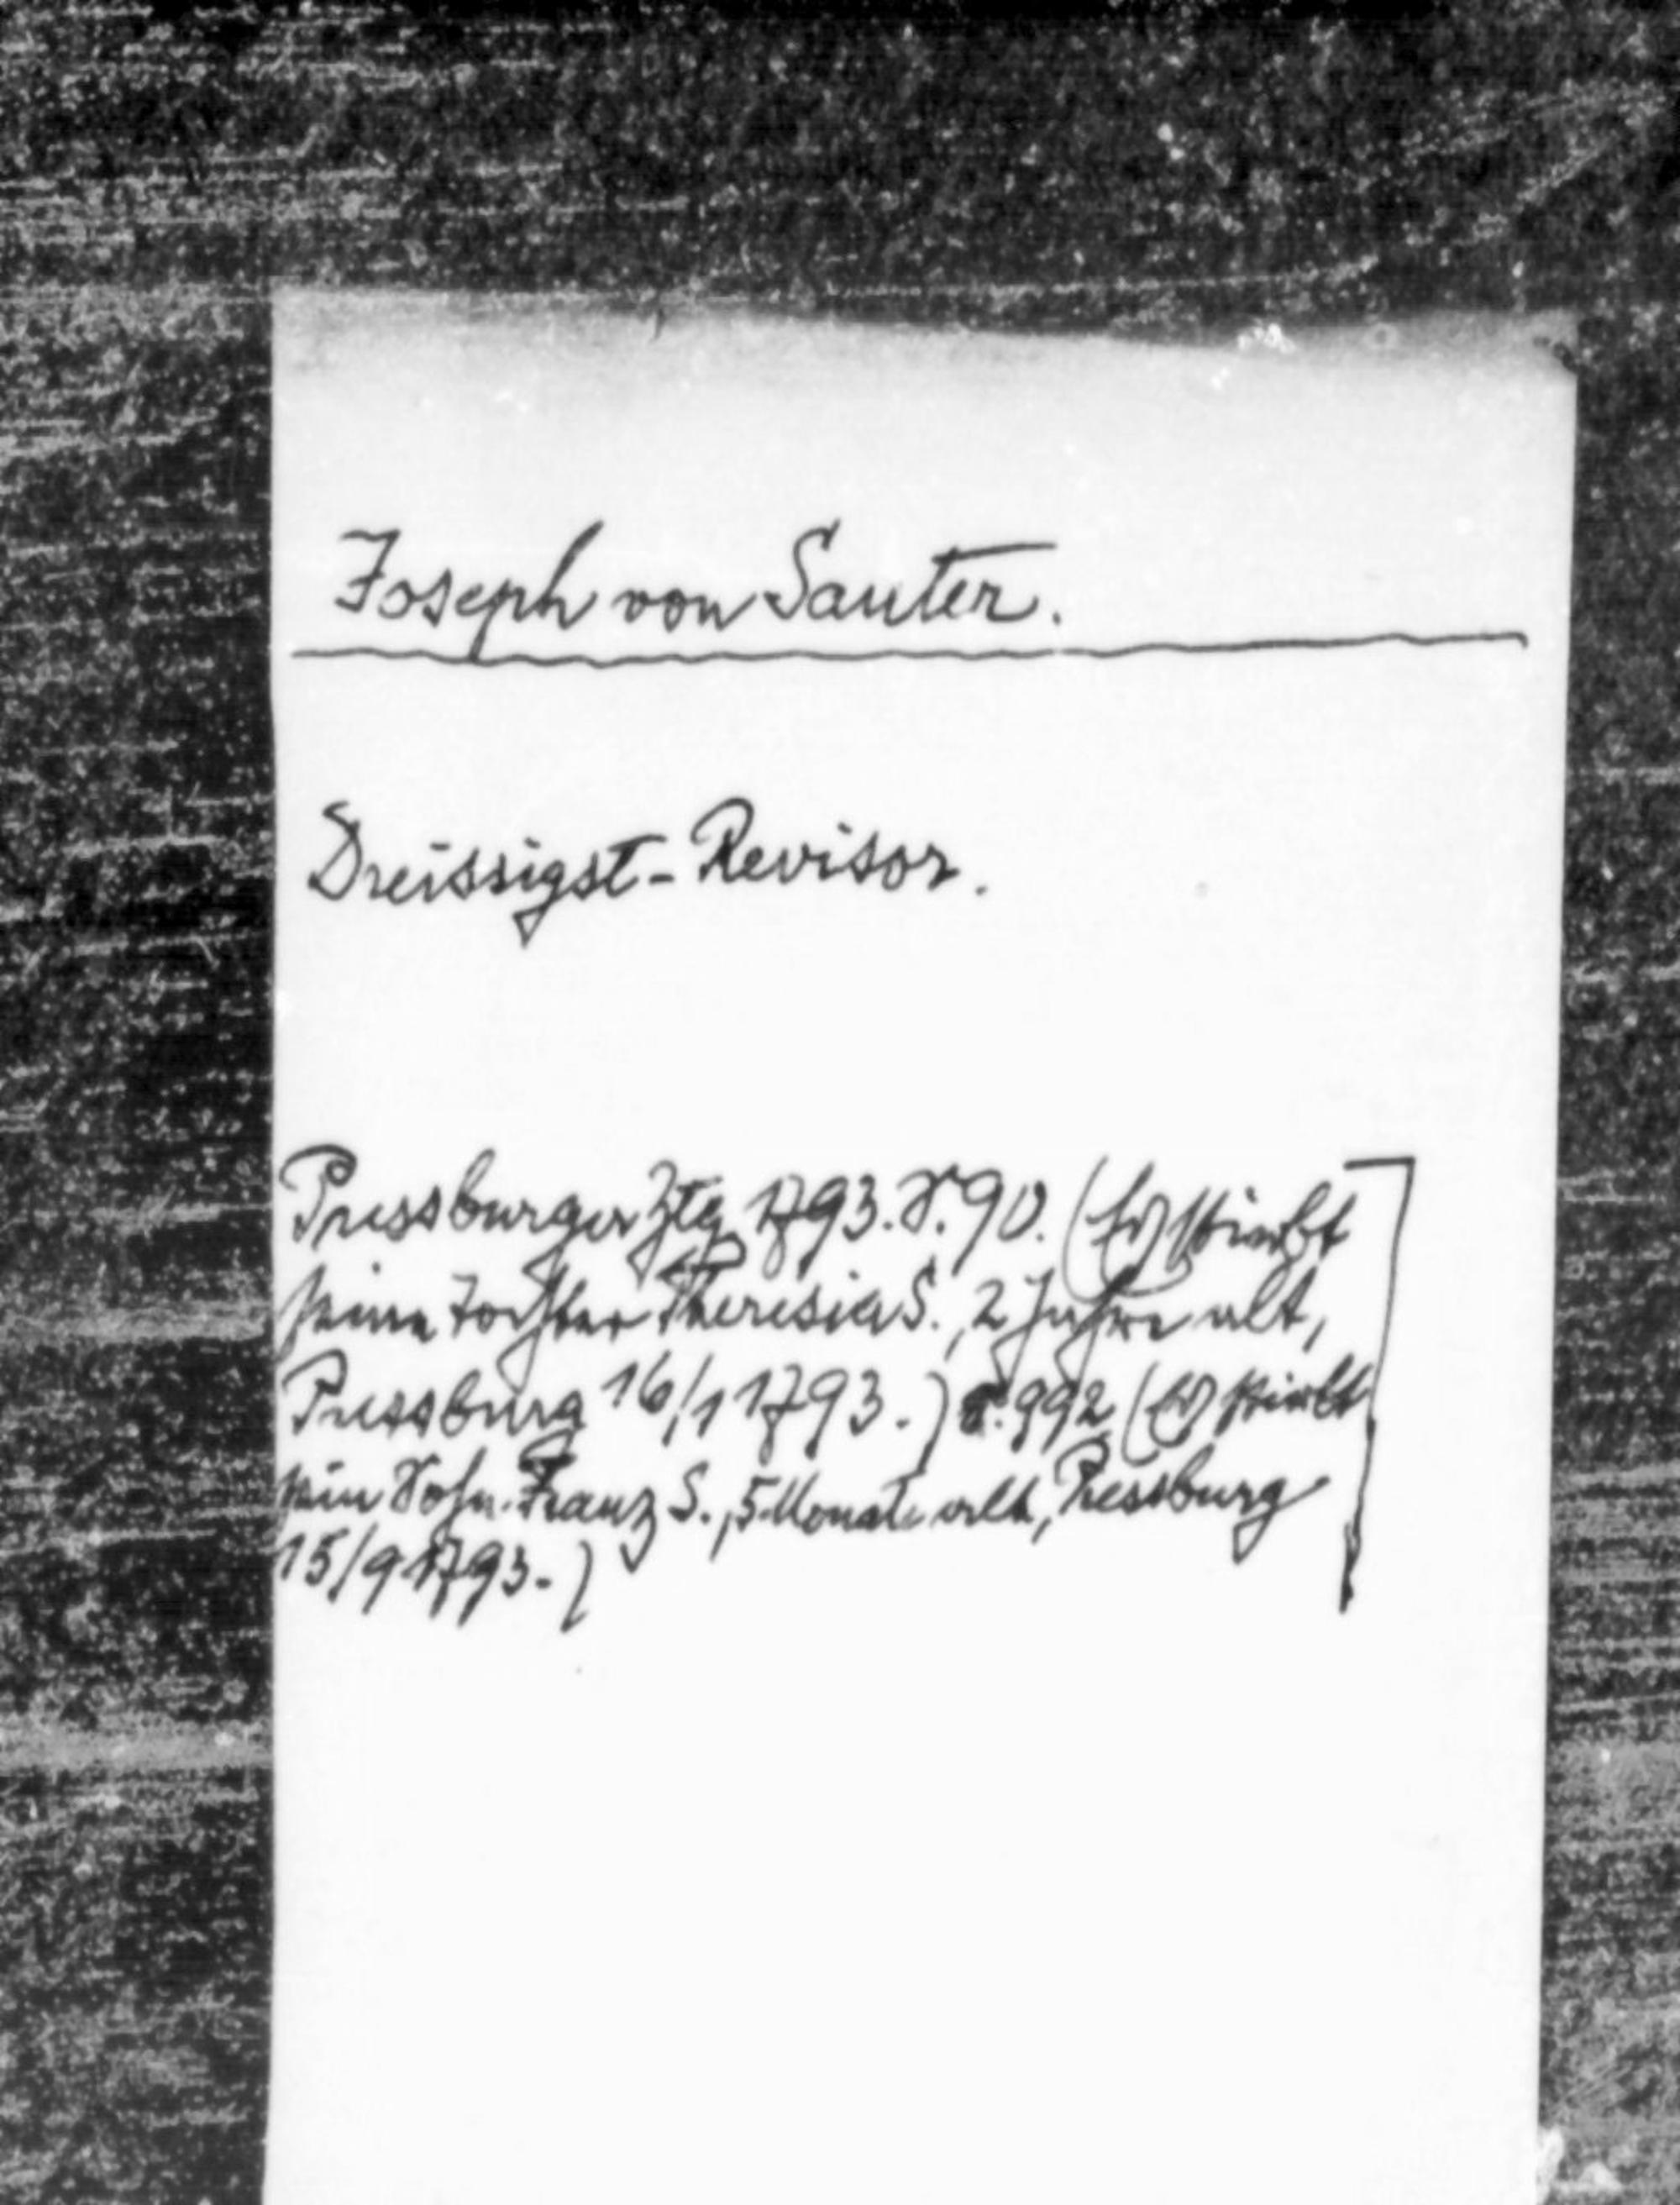 Joseph von Sauter.
Dreissigst-Revisor.
Pressburger Ztg 1793. S. 90. (Es stirbt
seine Tochter Theresia S., 2 Jahre alt,
Pressburg 16/1 1793.) S. 992 (Es stirbt
sein Sohn Franz S., 5 Monate alt, Pressburg
15/9 1793.)